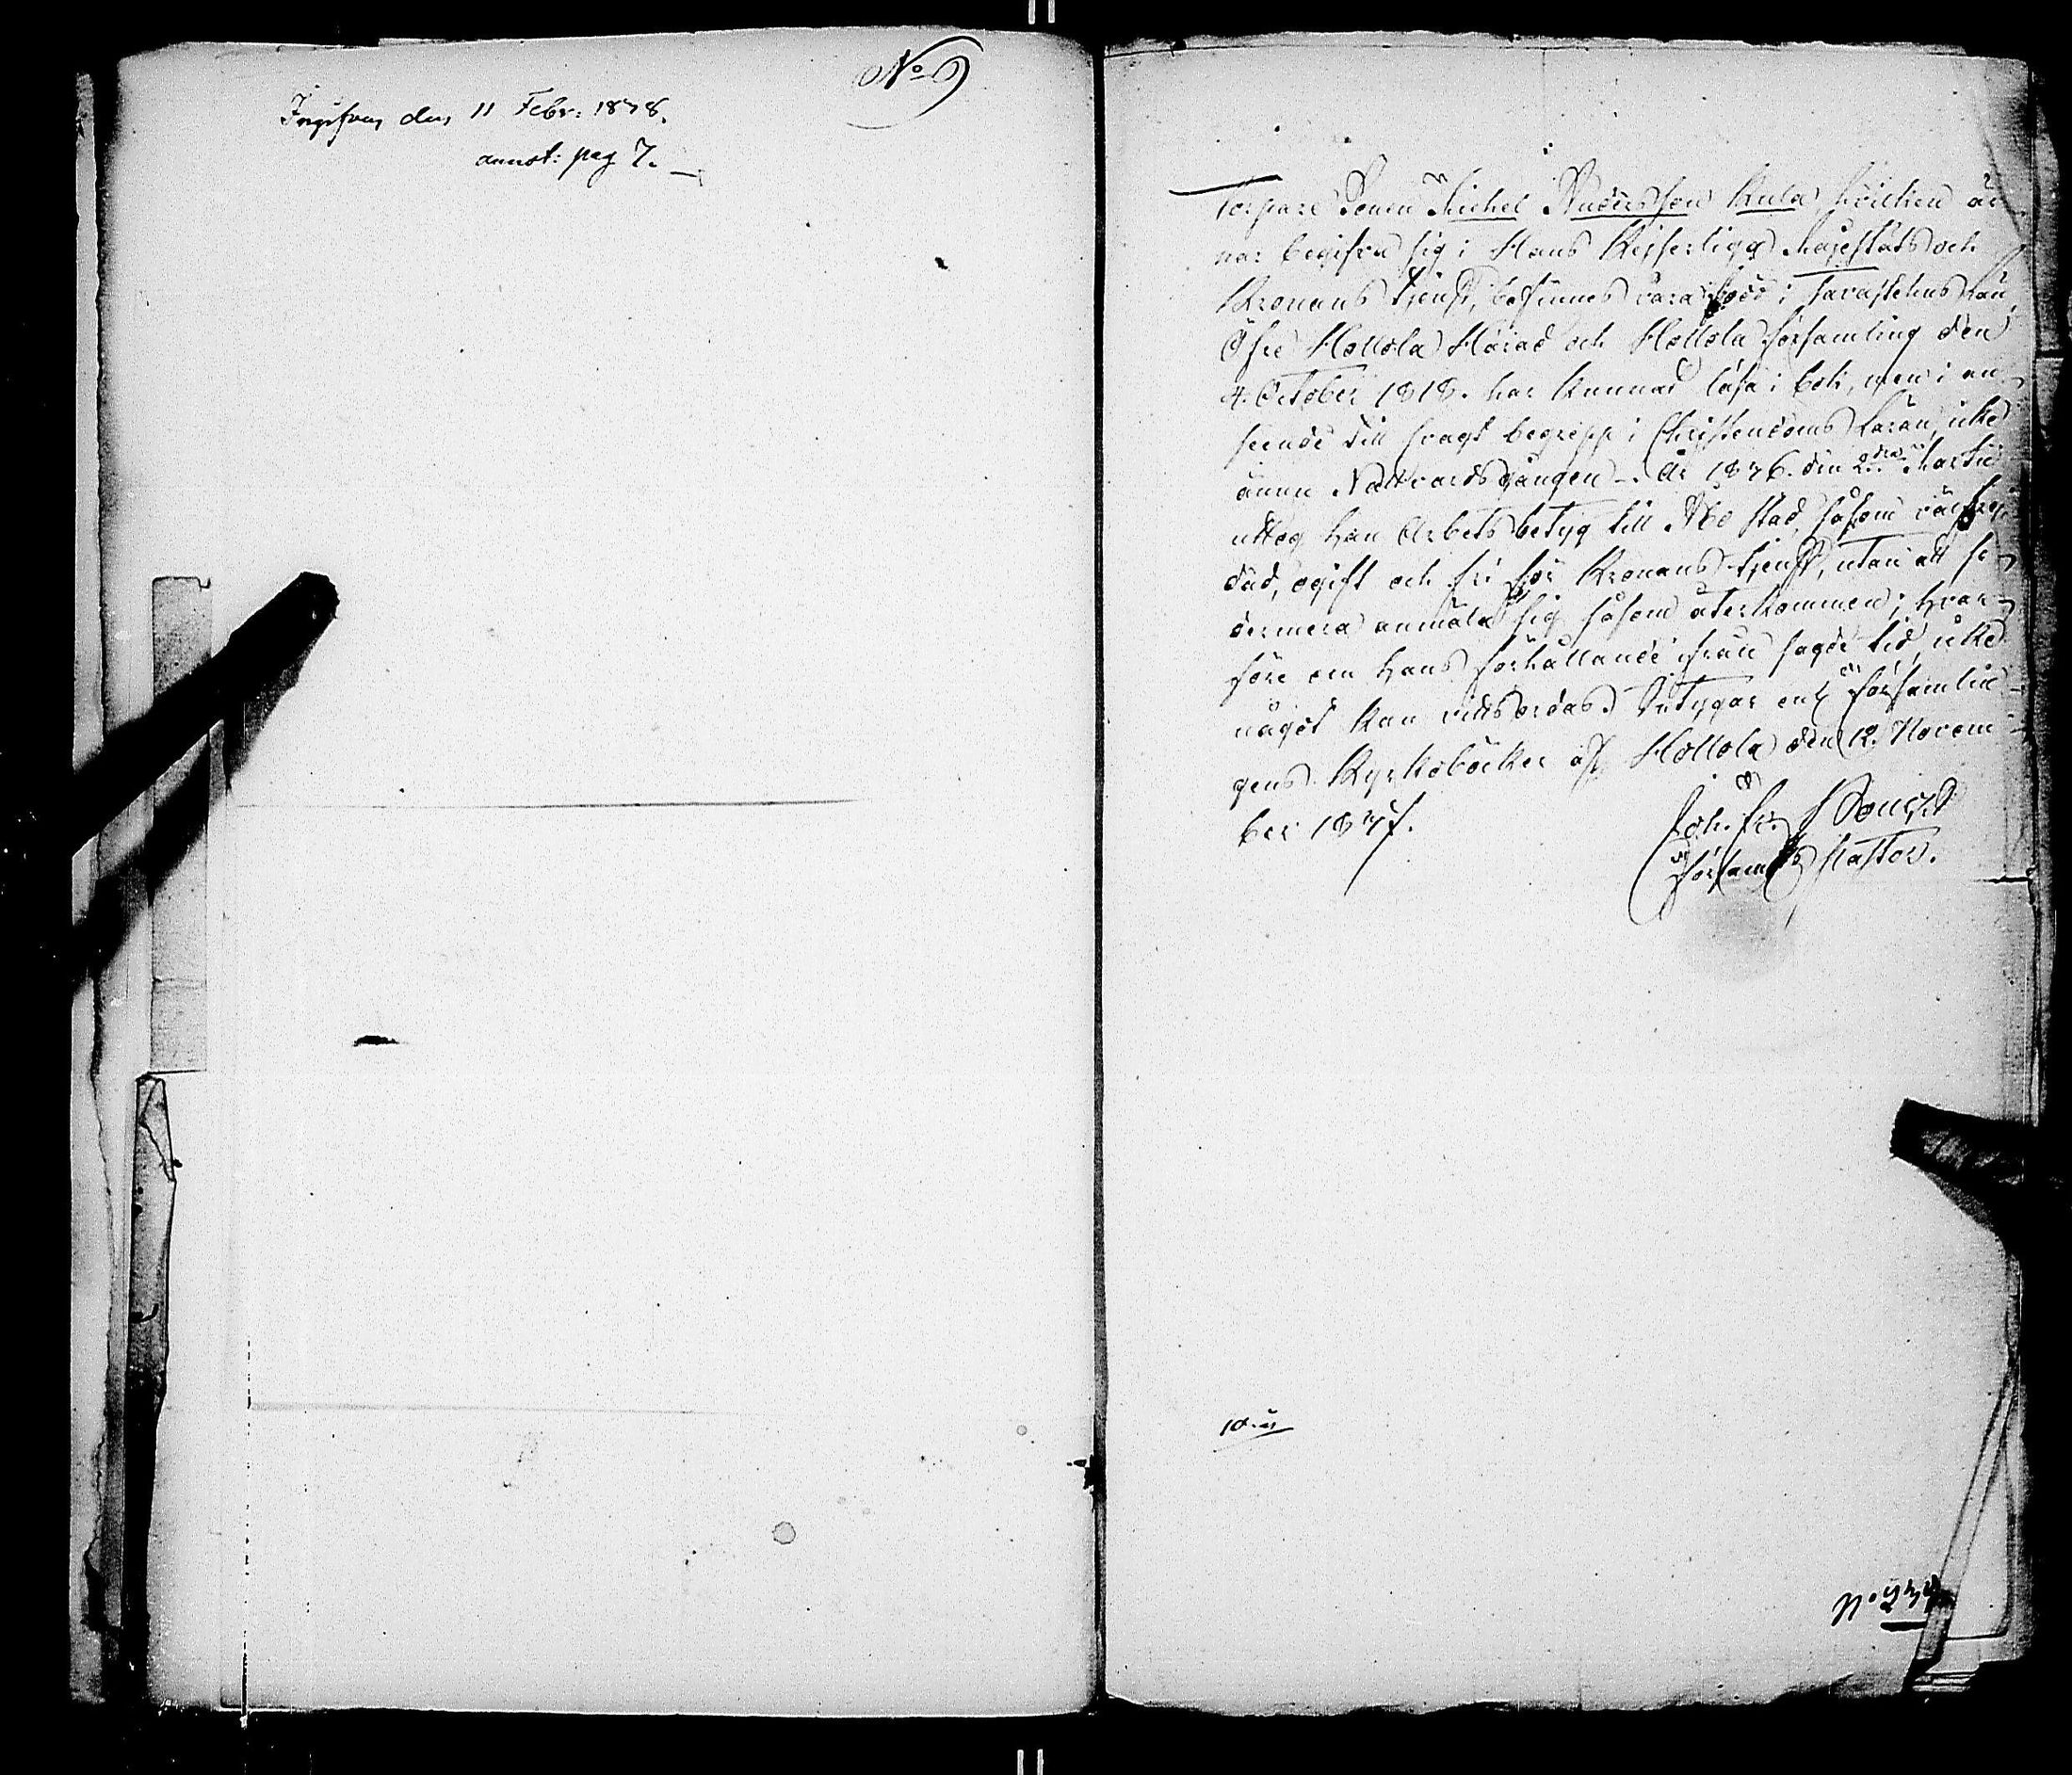 No 9
Ingifven den 11 Febr: 1848.
annot: pag 7.
Torpare Sonen Michel Andersson Kula, hvilken är-
nar begifva sig i Hans Kejserliga Majestäts och
Kronans tjenst, befinnes vara född i Tavastehus Län,
Öfre Hollola Härad och Hollola församling den
4. October 1818. har kunnat läsa i bok, men i an-
seende till svagt begrepp i Christendoms Läran, icke
ännu Nattvardsgången. År 1846. den 2dra Martii
uttog han Arbetsbetyg till Åbo stad, såsom välfräj-
dad, ogift och fri för Kronans tjenst, utan att se-
dermera anmäla sig såsom återkommen; hvar-
före om hans förhållande ifrån sagde tid, icke
något kan vittsordas. Intygar enl. församlin-
gens Kyrkoböcker af Hollola den 12. Novem-
ber 1847.
Joh. Fr.
Församl: Pastor.
No